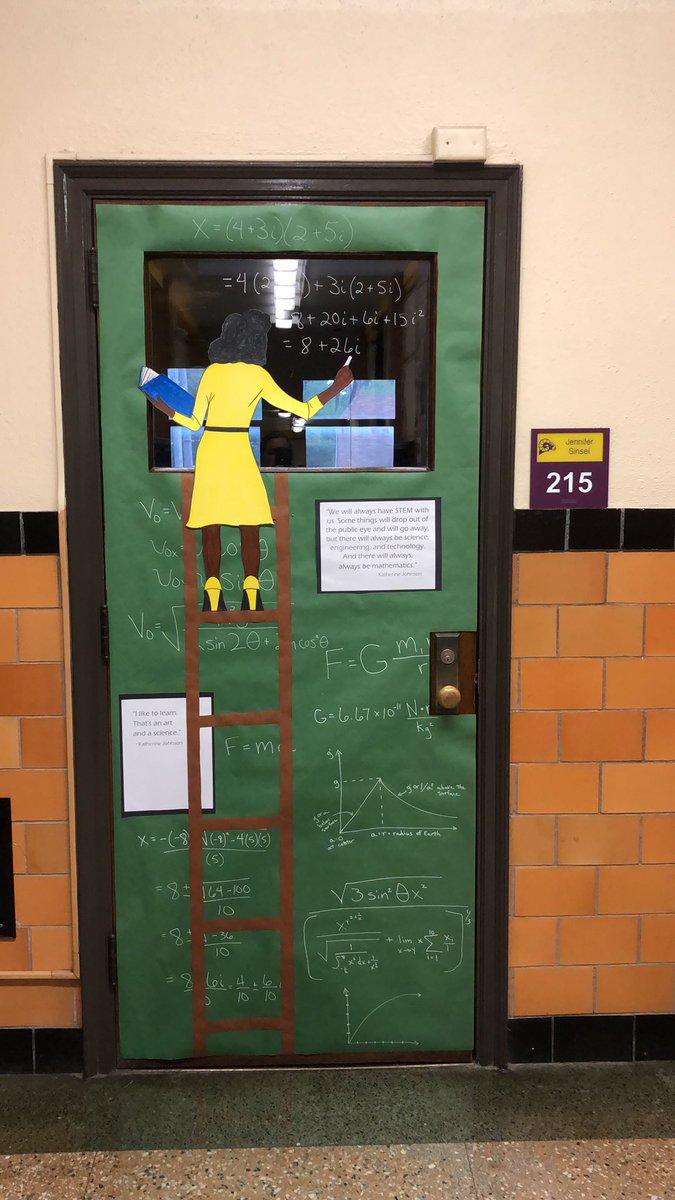 X = (4+3i)(2+5i)
=4(2 i)+3i(2+5i)
8+20i+6i+15i²
= 8+26i
Jennifer
Sinsel
215
"We will always have STEM with
us. Some things will drop out of
the public eye and will go away,
but there will always be science,
engineering, and technology.
And there will always,
always be mathematics."
Katherine Johnson
V₀=
θ
sin θ
V₀=√
sin2θ+ cos²θ
F=G m₁
r
G=6.67×10⁻¹¹ N·
kg²
"I like to learn.
That's an art
and a science."
- Katherine Johnson
F=m
g
g
g or 1/d² above the
surface
a=0
at center
a=r=radius of Earth
X= -(-8) √(-8)²-4(5)(5)
(5)
=8± √64-100
10
=8± √-36
10
=8 6i = 4/10 ± 6/10 i
√3sin²θx²
lim